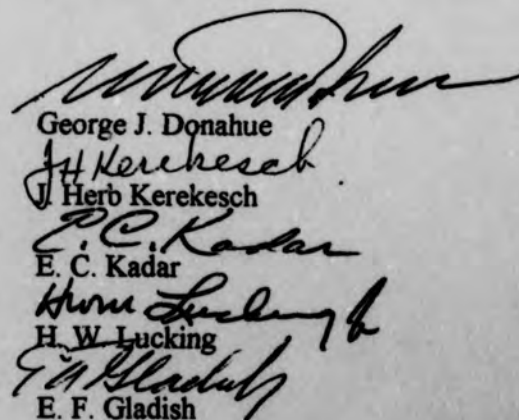 George J. Donahue
JH Kerekesch
J. Herb Kerekesch
E. C. Kadar
E. C. Kadar
Lucking Jr
H. W. Lucking
Gladish
E. F. Gladish